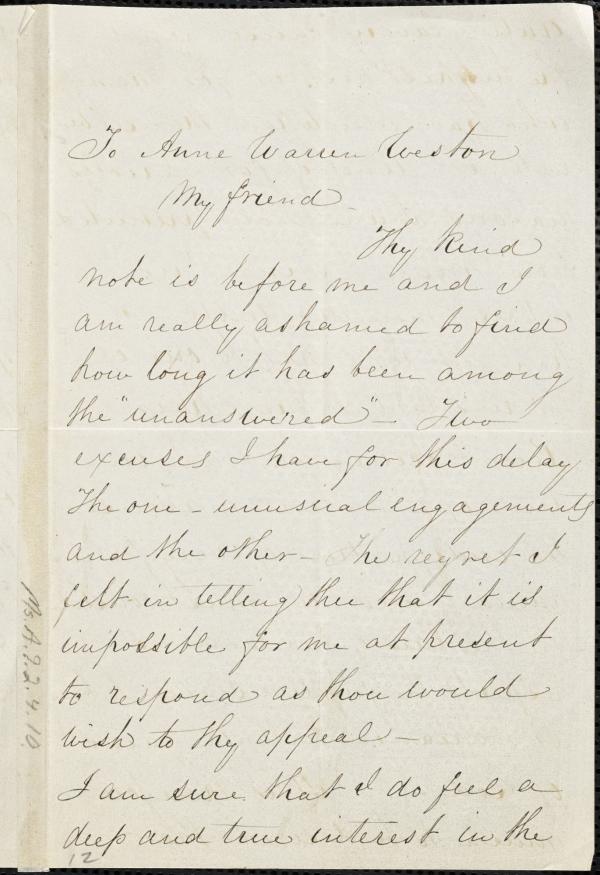 To Anne Warren Weston
My friend
Thy kind
note is before me and I
am really ashamed to find
how long it has been among
the "unanswered" - Two
excuses I have for this delay
The one - unusual engagements
and the other - The regret I
felt in telling thee that it is
impossible for me at present
to respond as thou would
wish to thy appeal -
I am sure that I do feel a
deep and true interest in the
12
Ms.A.9.2.4.10.